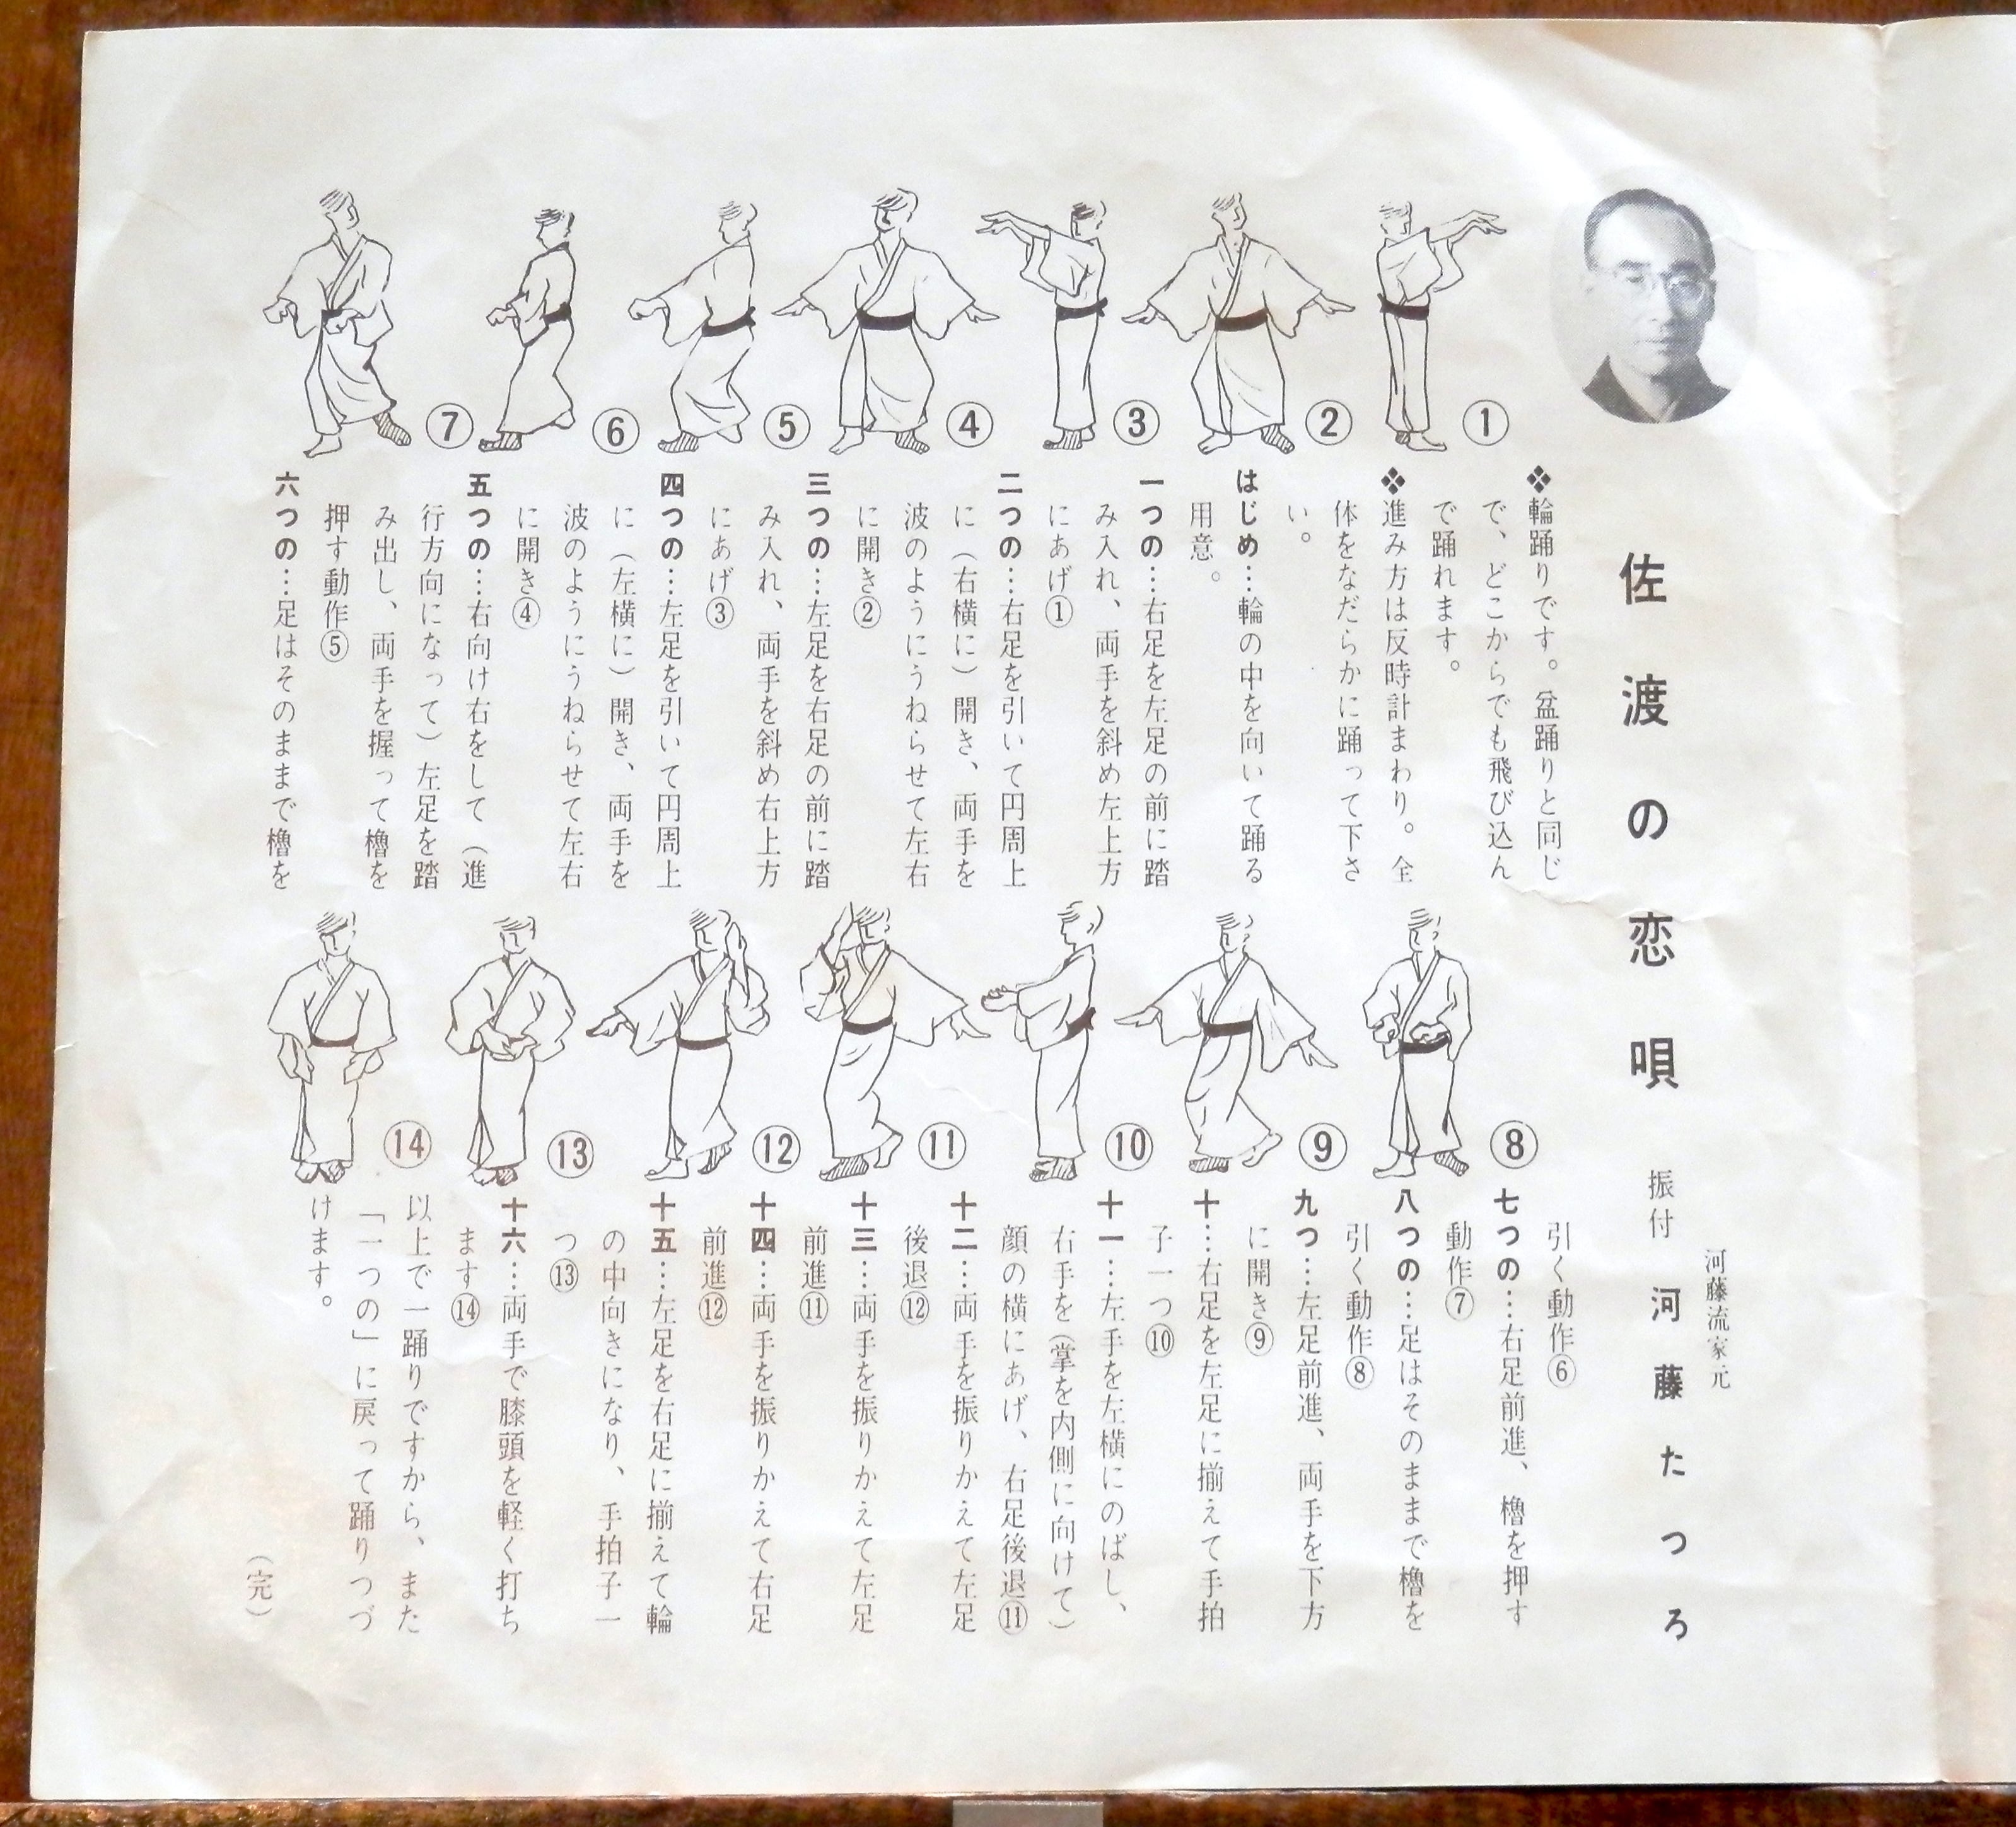 佐渡の恋唄
振付 河藤たつろ
河藤流家元
❖輪踊りです。盆踊りと同じ
で、どこからでも飛び込ん
で踊れます。
❖進み方は反時計まわり。全
体をなだらかに踊って下さ
い。
はじめ…輪の中を向いて踊る
用意。
一つの…右足を左足の前に踏
み入れ、両手を斜め左上方
にあげ①
二つの…右足を引いて円周上
に（右横に）開き、両手を
波のようにうねらせて左右
に開き②
三つの…左足を右足の前に踏
み入れ、両手を斜め右上方
にあげ③
四つの…左足を引いて円周上
に（左横に）開き、両手を
波のようにうねらせて左右
に開き④
五つの…右向け右をして（進
行方向になって）左足を踏
み出し、両手を握って櫓を
押す動作⑤
六つの…足はそのままで櫓を
引く動作⑥
七つの…右足前進、櫓を押す
動作⑦
八つの…足はそのままで櫓を
引く動作⑧
九つ…左足前進、両手を下方
に開き⑨
十…右足を左足に揃えて手拍
子一つ⑩
十一…左手を左横にのばし、
右手を（掌を内側に向けて）
顔の横にあげ、右足後退⑪
十二…両手を振りかえて左足
後退⑫
十三…両手を振りかえて左足
前進⑪
十四…両手を振りかえて右足
前進⑫
十五…左足を右足に揃えて輪
の中向きになり、手拍子一
つ⑬
十六…両手で膝頭を軽く打ち
ます⑭
以上で一踊りですから、また
「一つの」に戻って踊りつづ
けます。
（完）
①
②
③
④
⑤
⑥
⑦
⑧
⑨
⑩
⑪
⑫
⑬
⑭